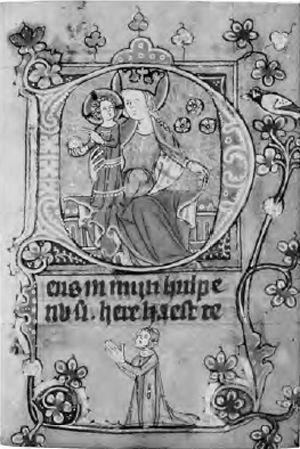 Deus in myn hulpe
nv si. here haest te